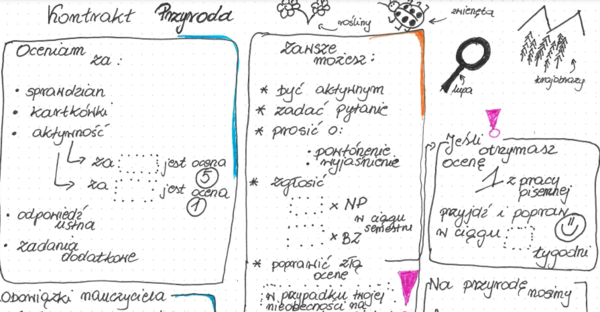 Kontrakt Przyroda
rośliny
zwierzęta
lupa
krajobrazy
Oceniam
za:
• sprawdzian
• kartkówki
• aktywność
za jest ocena
5
za jest ocena
1
• odpowiedź
ustna
• zadania
dodatkowe
Obowiązki nauczyciela
Zawsze
możesz:
* być aktywnym
* zadać pytanie
* prosić o:
• powtórzenie
• wyjaśnienie
* zgłosić
x NP
w ciągu
semestru
x BZ
* poprawić złą
ocenę
w przypadku twojej
nieobecności na
Jeśli
otrzymasz
ocenę
1 z pracy
pisemnej
przyjdź i popraw
w ciągu
tygodni
Na przyrodę
nosimy